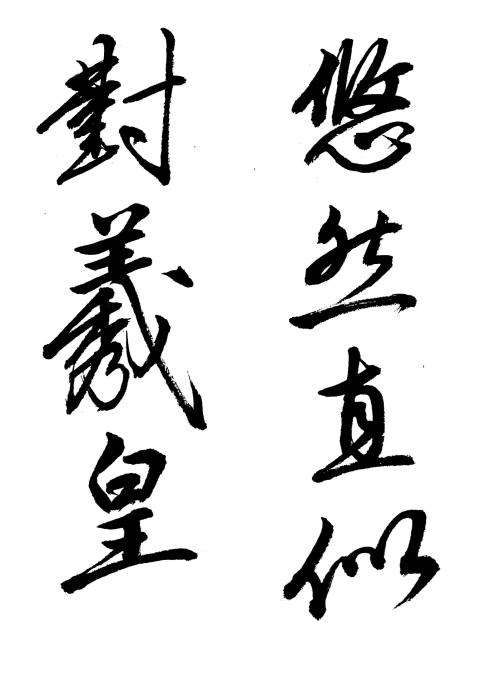 悠然直似
對羲皇